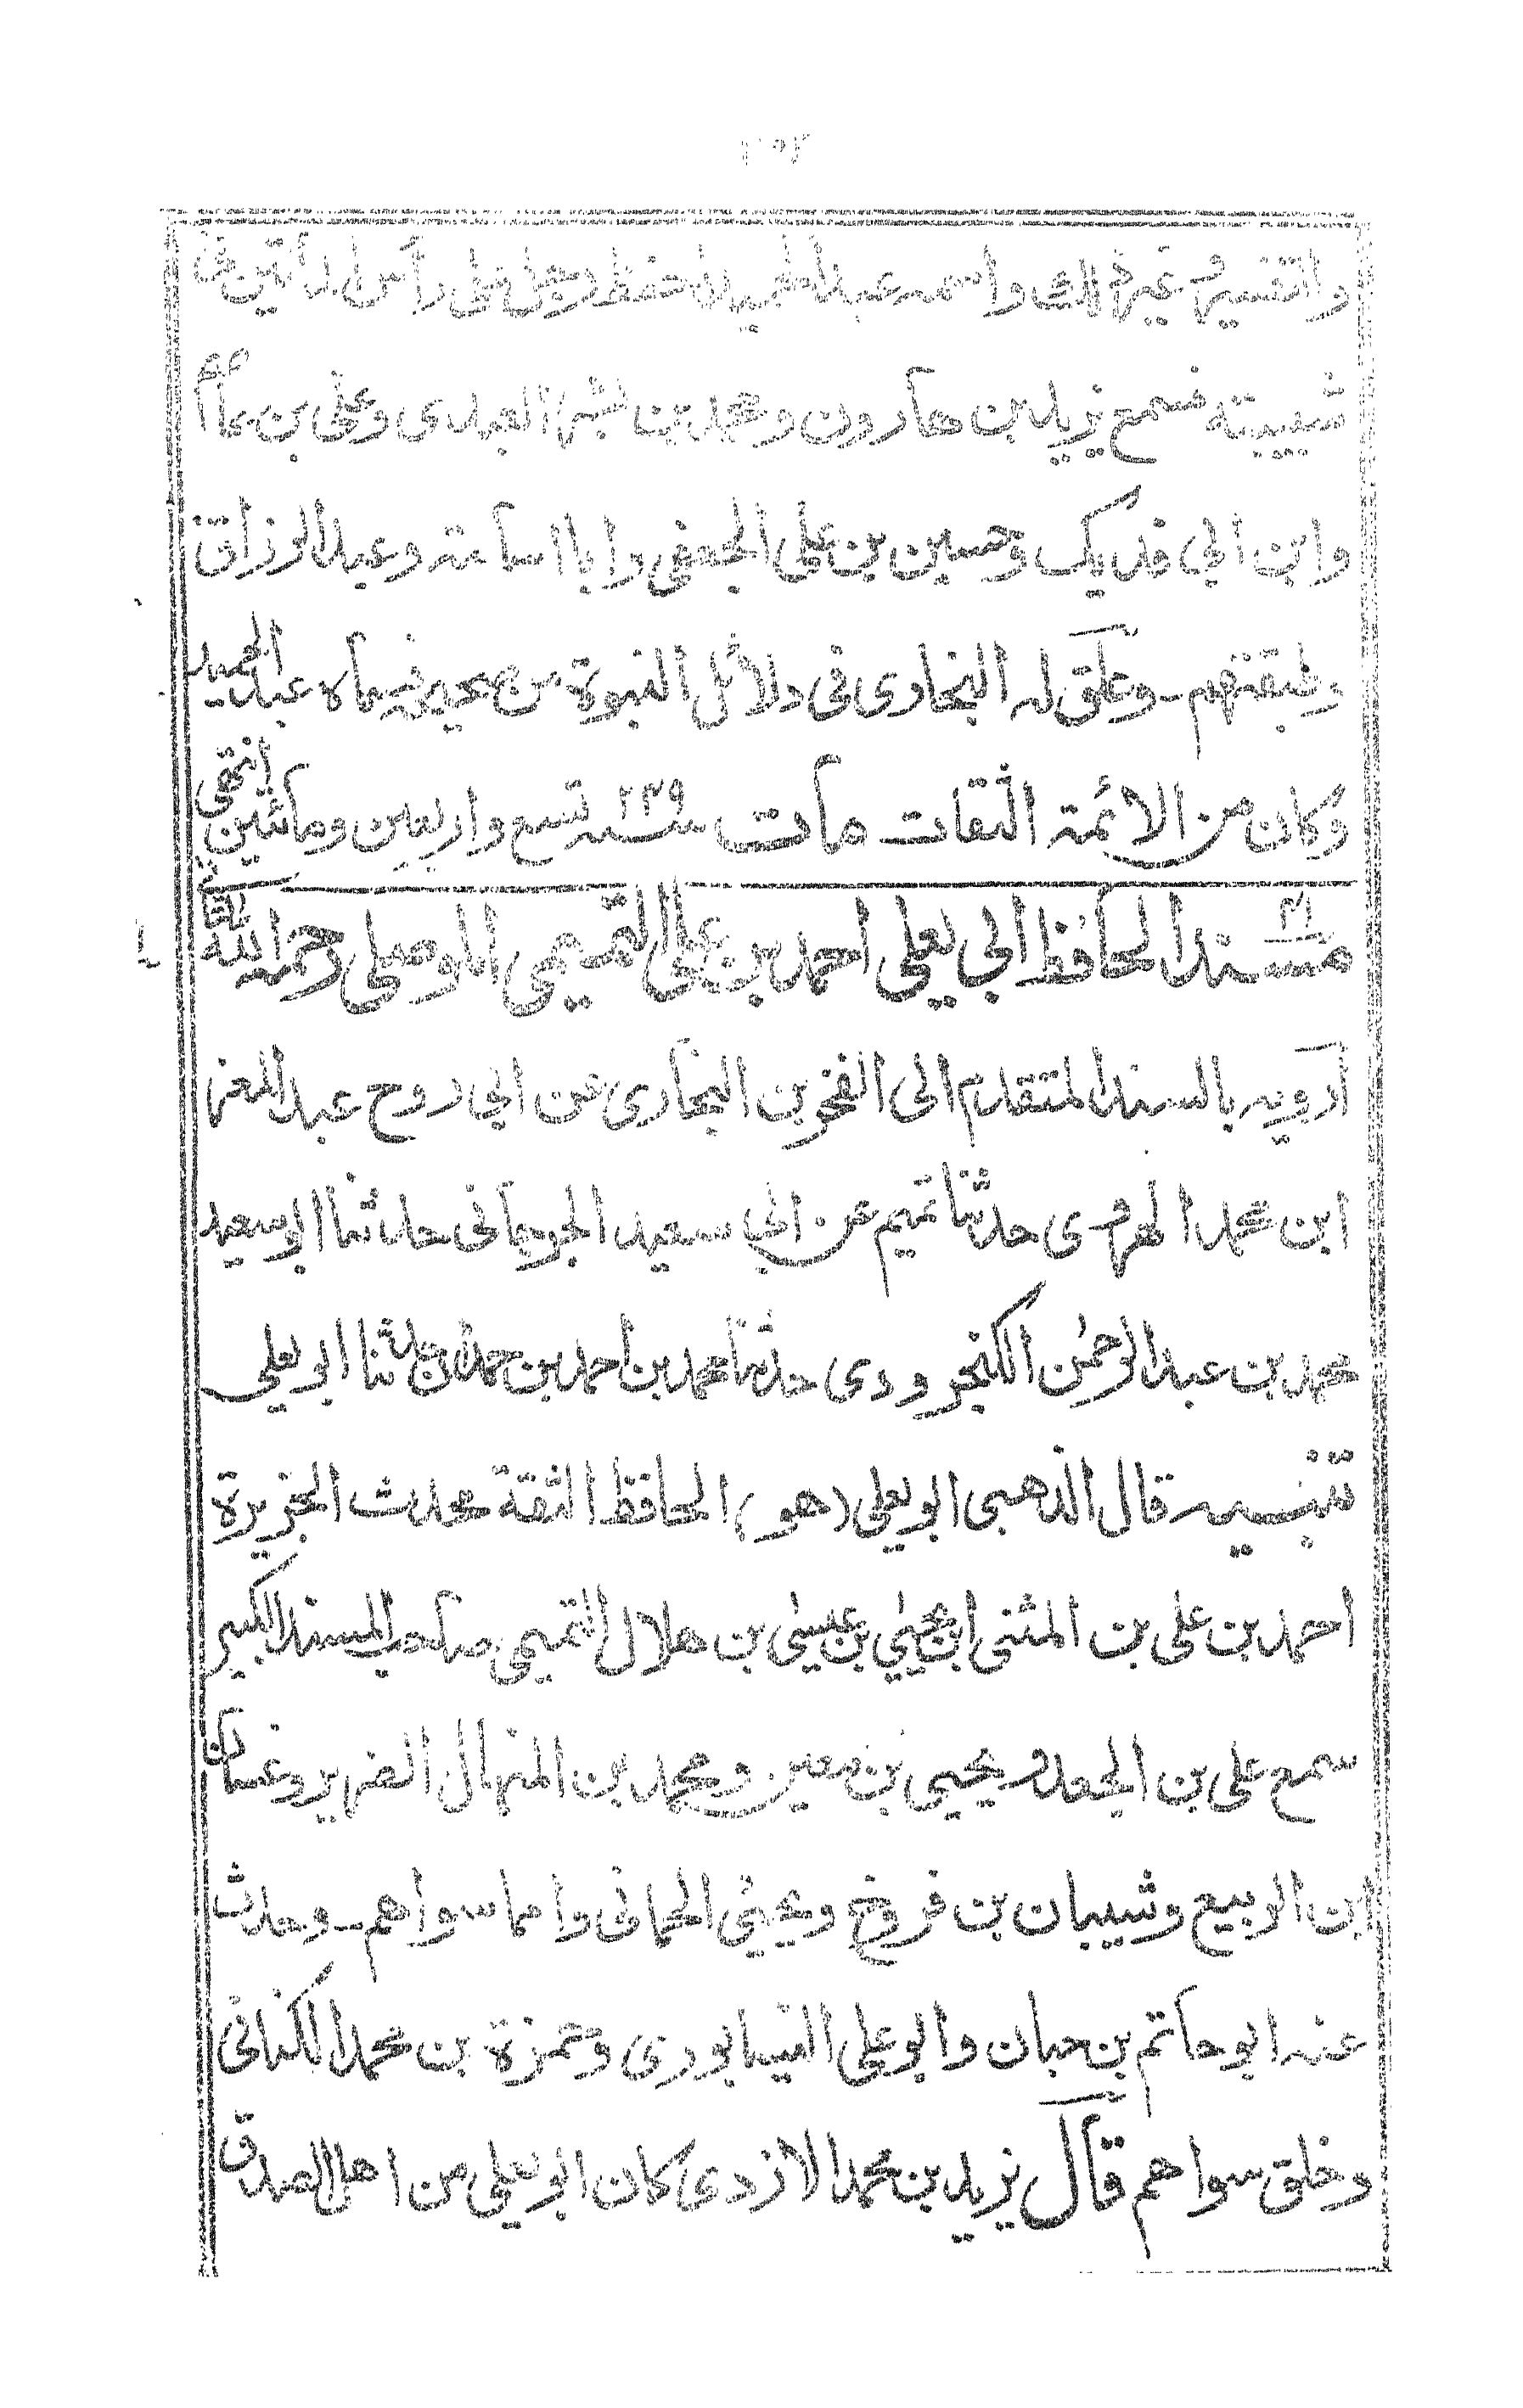 والتفسير وغير ذلك واسمه عبد الحميد رحل على رأس المأتين
شبيبته فسمع يزيد بن هارون ومحمد بن بشر العبدى وعلى بن عاصم
وابن ابي فديك وحسين بن على الجعفى وابا اسامة وعبد الرزاق
وطبقتهم ـ وعلق له البخارى فى دلائل النبوة من صحيحه فسماه عبد الحميد
وكان من الائمة الثقات مات سنة ٢٤٩ تسع واربعين ومأتين انتهى
مسند الحافظ ابي يعلى احمد بن على التميمى الموصلى رحمه الله تعالى
ارويه بالسند المتقدم الى الفخر بن البخارى عن ابي روح عبد المعز
ابن محمد الهروى حدثنا تميم عن ابي سعيد الجرجانى حدثنا ابو سعيد
محمد بن عبد الرحمن الكنجرودى حدثنا محمد بن احمد بن حمدان حدثنا ابو يعلى
تنبيه قال الذهبى ابو يعلى (هو) الحافظ الثقة محدث الجزيرة
احمد بن على بن المثنى ابن يحيى بن عيسى بن هلال التميمى صاحب المسند الكبير
سمع على بن الجعد ويحيى بن معين ومحمد بن المنهال الضرير وغسان
ابن الربيع وشيبان بن فروخ ويحيى الحمانى وامما سواهم ـ وحدث
عنه ابو حاتم بن حبان وابو على النيسابورى وحمزة بن محمد الكنانى
وخلق سواهم قال يزيد بن محمد الازدى كان ابو يعلى من اهل الصدق